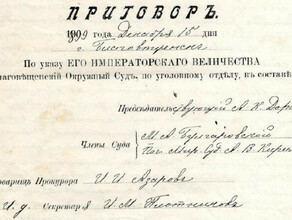 ПРИГОВОРЪ.
1909 года Декабря 15 дня
г. Благовѣщенскъ
По указу ЕГО ИМПЕРАТОРСКАГО ВЕЛИЧЕСТВА
лаговѣщенскій Окружный Судъ, по уголовному отдѣлу, въ составѣ
Предсѣдательствующій А. К.
Члены Суда М. А.
Поч. Мир. Суд. А. В.
оварищъ Прокурора И. И. Азаровъ
И. д. Секретаря И. М. Плотниковъ